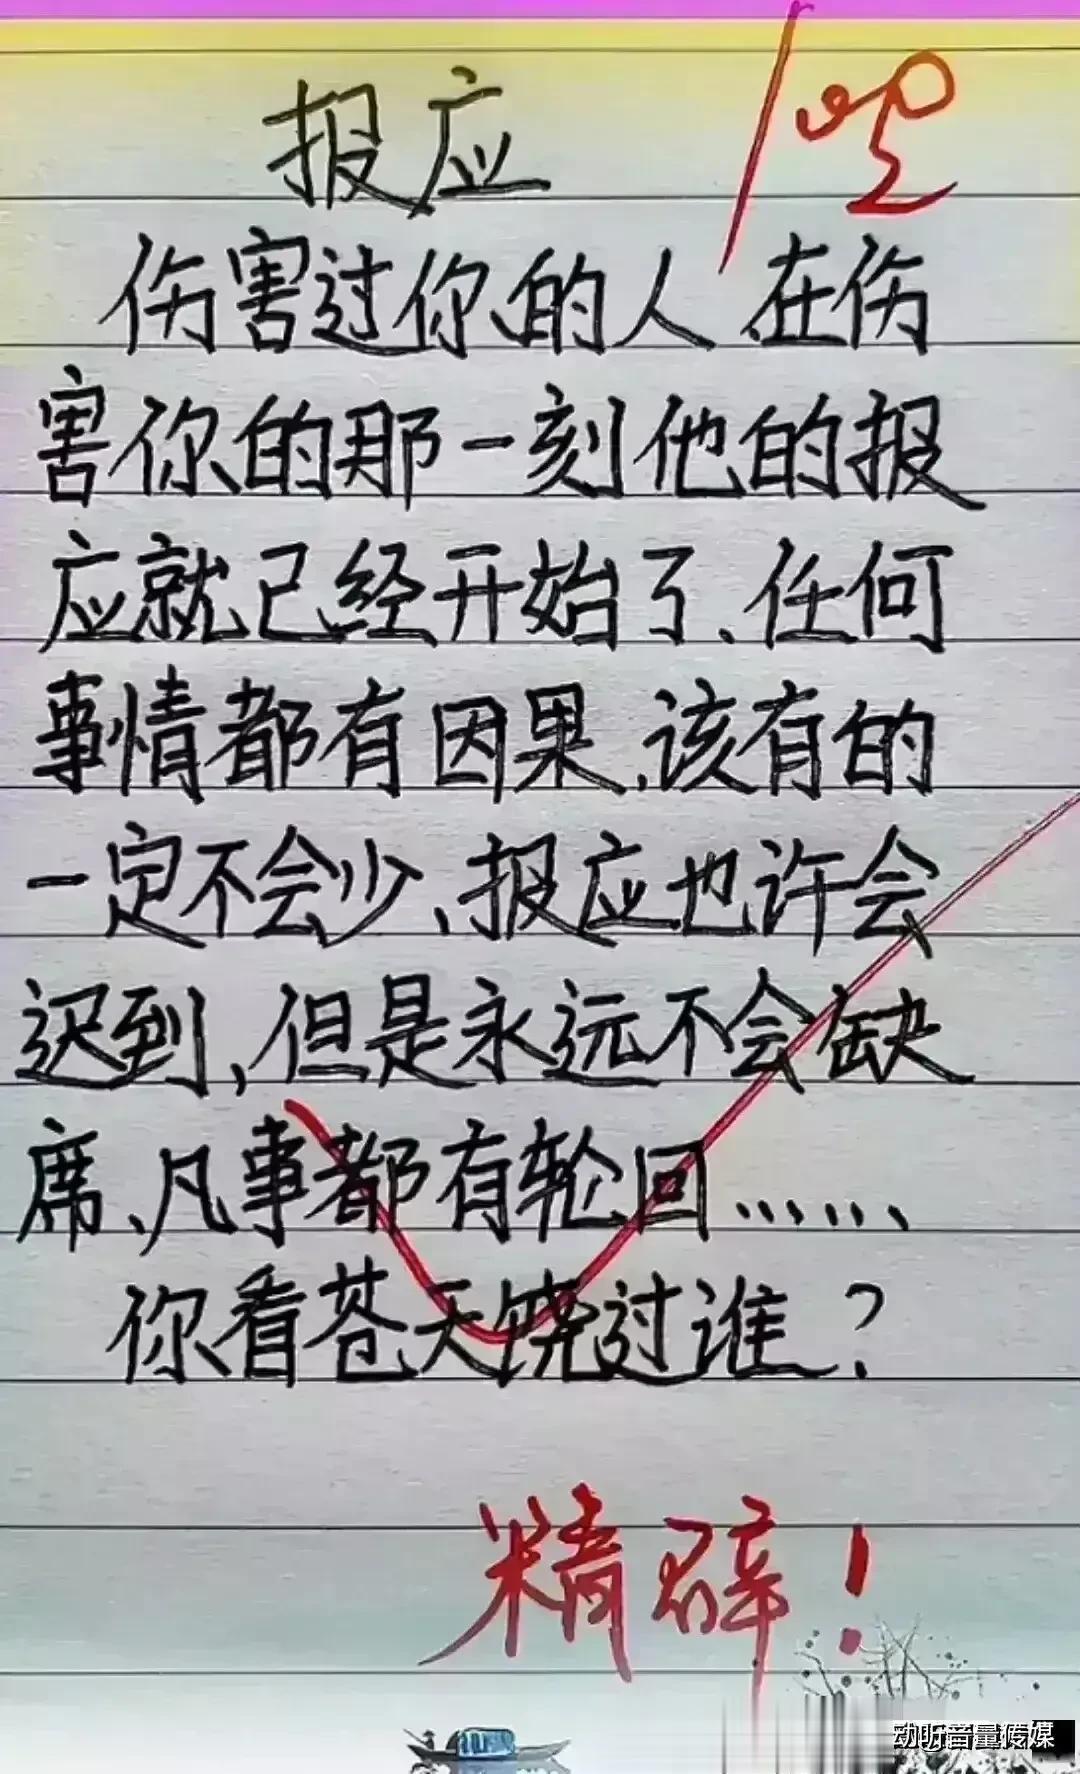 报应
伤害过你的人、在伤
害你的那一刻他的报
应就已经开始了、任何
事情都有因果、该有的
一定不会少、报应也许会
迟到,但是永远不会缺
席、凡事都有轮回……
你看苍天饶过谁、?
精辟!
动听音量传媒